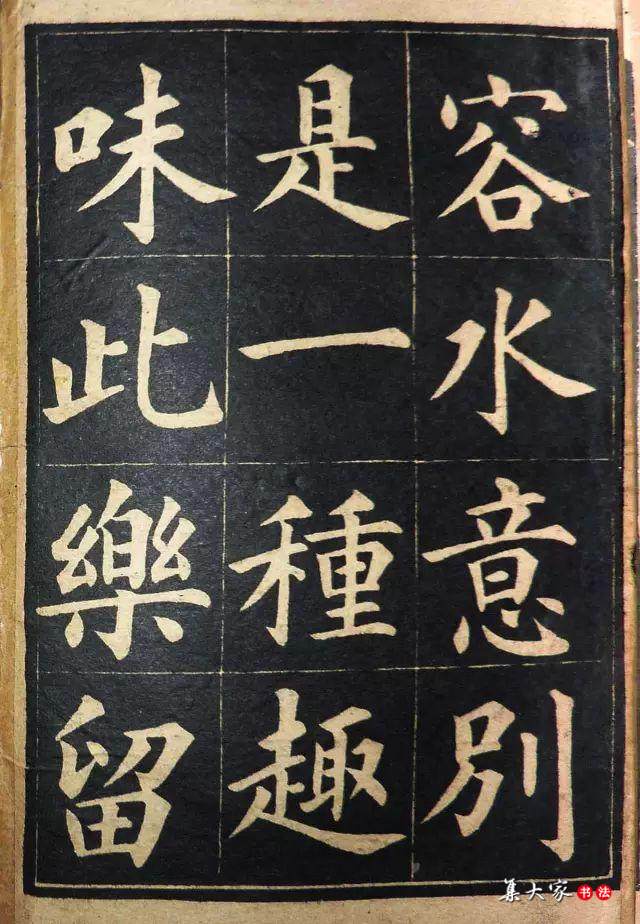 容水意別
是一種趣
味此樂留
集大家书法